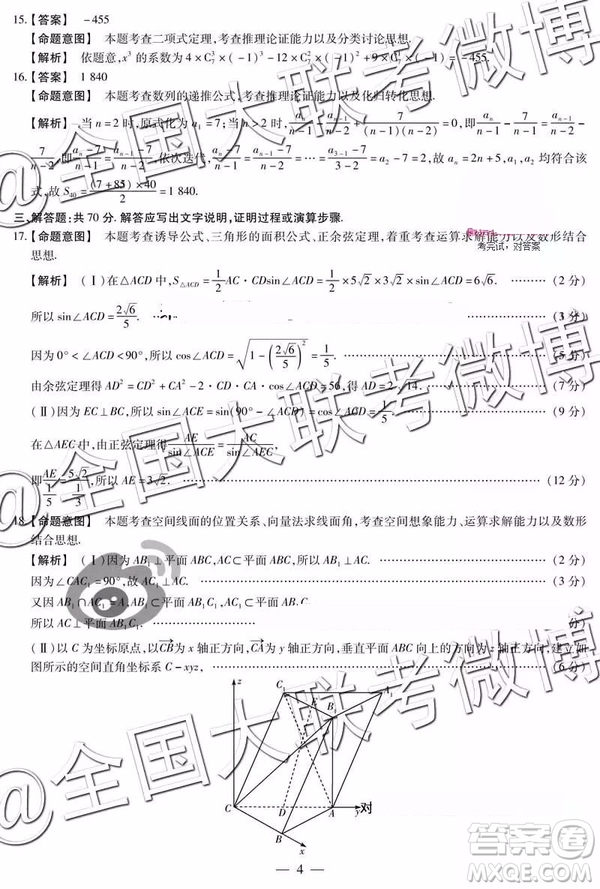 15.【答案】 -455
【命题意图】 本题考查二项式定理,考查推理论证能力以及分类讨论思想.
【解析】 依题意,x³的系数为4×C
=-455.
16.【答案】 1 840
【命题意图】 本题考查数列的递推公式,考查推理论证能力以及化归转化思想.
【解析】 当n=2时,原式化为a₁=7;当n≥2时,
=0,即
,依次迭代,
=a₂-7=2,故aₙ=2n+5,a₁,a₂均符合该
式,故S₄₀=(7+85)×40/2=1 840.
三、解答题:共70分.解答应写出文字说明,证明过程或演算步骤.
17.【命题意图】 本题考查诱导公式、三角形的面积公式、正余弦定理,着重考查运算求解能力以及数形结合
考完试,对答案
思想.
【解析】 (Ⅰ)在△ACD中,S△ACD=1/2 AC·CDsin∠ACD=1/2×5√2×3√2×sin∠ACD=6√6. (2分)
所以sin∠ACD=2√6/5. (3分)
因为0°<∠ACD<90°,所以cos∠ACD=√(1-(2√6/5)²)=1/5. (5分)
由余弦定理得AD²=CD²+CA²-2·CD·CA·cos∠ACD=56,得AD=2√14. (7分)
(Ⅱ)因为EC⊥BC,所以sin∠ACE=sin(90°-∠ACD)=cos∠ACD=1/5. (9分)
在△AEC中,由正弦定理得AE/sin∠ACE=AC/sin∠AEC,
即
,所以AE=3√2. (12分)
18.【命题意图】 本题考查空间线面的位置关系、向量法求线面角,考查空间想象能力、运算求解能力以及数形
结合思想.
【解析】 (Ⅰ)因为AB₁⊥平面ABC,AC⊂平面ABC,所以AB₁⊥AC. (2分)
因为∠CAC₁=90°,故AC₁⊥AC. (3分)
又因AB₁∩AC₁=A,AB₁⊂平面AB₁C₁,AC₁⊂平面AB₁C₁,
所以AC⊥平面AB₁C₁. 分)
(Ⅱ)以C为坐标原点,以CB为x轴正方向,CA为y轴正方向,垂直平面ABC向上的方向为z轴正方向,建立如
图所示的空间直角坐标系C-xyz, (6分)
z
C₁
E
A₁
B₁
C
D
A
y
对
B
x
— 4 —
@全国大联考微博
@全国大联考微博
@全国大联考微博
答案圈
MXQE.COM